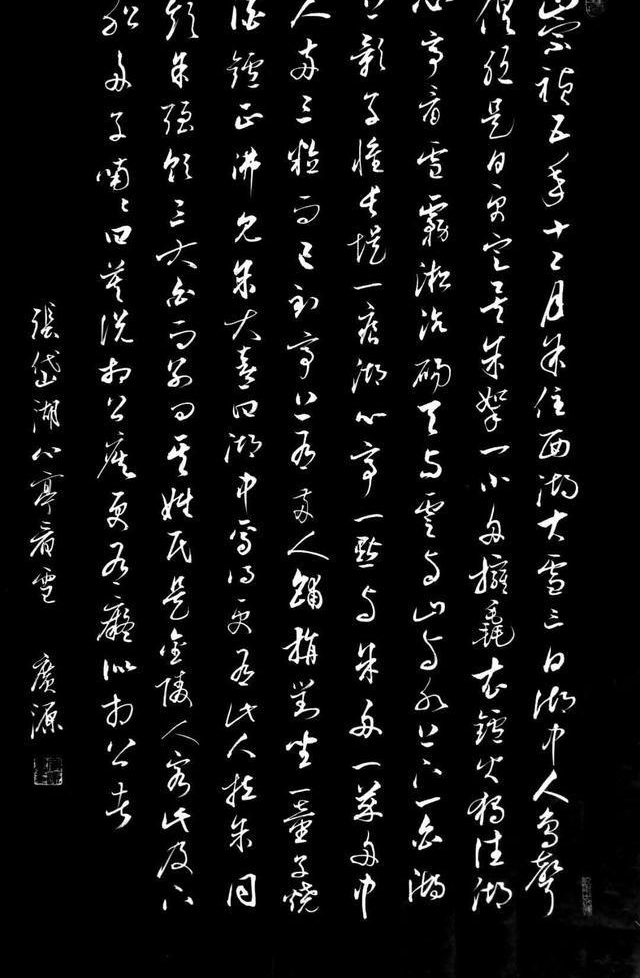 崇禎五年十二月余住西湖大雪三日湖中人鳥聲
俱絕是日更定矣余拏一小舟擁毳衣鑪火獨往湖
心亭看雪霧凇沆碭天與雲與山與水上下一白湖
上影子惟長堤一痕湖心亭一點與余舟一芥舟中
人兩三粒而已到亭上有兩人鋪氈對坐一童子燒
酒鑪正沸見余大喜曰湖中焉得更有此人拉余同
飲余強飲三大白而別問其姓氏是金陵人客此及下
船舟子喃喃曰莫說相公癡更有癡似相公者
張岱湖心亭看雪 廣源